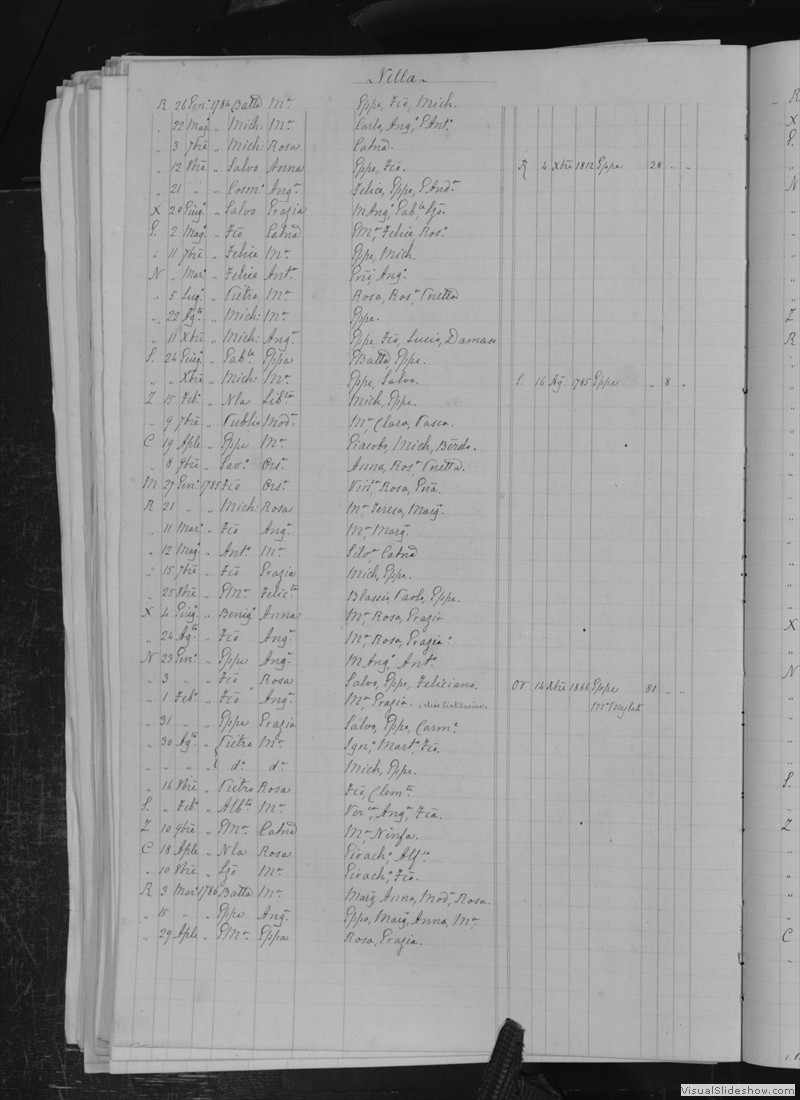 Vella
R 26 Gen: 1784 Batta Mª Eppe, Fcõ, Mich.
„ 22 Magº „ Mich: Mª Carlo, Angº, GAntº
„ 3 7bre „ Mich: Rosa Catnã
„ 12 8bre „ Salvo Anna Eppe, Fcõ. R 4 Xbre 1812 Eppe 28 „ „
„ 21 „ „ Cosmº Angª Felice, Eppe, GAndª
X 20 Giugº „ Salvo Grazia MAngª
S. 2 Magº „ Fcõ Catnã GMª Felice, Rosª
„ 11 7bre „ Felice Mª Eppe, Mich.
N „ Marº „ Felice Antª Angª
„ 5 Lugº „ Pietro Mª Rosa, Rosª, Vnetta
„ 22 Agto „ Mich: Mª Eppe.
„ 11 Xbre „ Mich: Angª Eppe, Fcõ, Lucia, Damaso
S. 24 Giugº „ Gable Eppa GBatta, Eppe.
„ „ Xbre „ Mich: Mª Eppe, Salvo. S. 16 Agº 1785 Eppe „ 8 „
Z 15 Febº „ Nla Libta Mich, Eppe.
„ 9 7bre „ Publio Modª Mª, Clara, Pasca.
C 19 Aple „ Eppe Mª Giacobo, Mich, Berdo.
„ 8 9bre „ Savº Orsª Anna, Rosª Vnetta.
M 27 Genº 1785 Fcõ Orsª Rosa,
R 21 „ „ Mich: Rosa Mª Teresa, Margª
„ 11 Marº „ Fcõ Angª Mª Margª
„ 12 Magº „ Antº Mª Silvª Catnã
„ 15 7bre „ Fcõ Grazia Mich, Eppe.
„ 25 8bre „ GMª Felicta Blassio, Paolo, Eppe.
X 4 Giugº „ Benigº Anna Mª, Rosa, Grazia
„ 24 Agto „ Fcõ Angª Mª, Rosa, Grazia.
N 23 Genº „ Eppe Angª MAngª, Antª
„ 3 „ „ Fcõ Rosa Salvo, Eppe, Feliciano. or 14 Xbre 1866 Eppe 81 „ „
„ 1 Febº „ Fcõ Angª Mª, Grazia. Mª
„ 31 „ „ Eppe Grazia Salvo, Eppe, Carmº
„ 30 Agto „ Pietro Mª Ignº, Martº Fcõ.
„ „ „ „ dº dª Mich, Eppe.
„ 16 8bre „ Pietro Rosa Fcõ, Clemte
S. „ Febº „ Albto Mª Angª, Fcã.
Z 10 9bre „ GMª Catnã Mª, Ninfa.
C 18 Aple „ Nla Rosa Girachº, Alfº
„ 10 8bre „ Mª Girachº, Fcõ.
R 3 Marº 1786 Batta Mª Margª Anna, Modª, Rosa.
„ 15 „ „ Eppe Angª Eppa, Margª, Anna, Mª
„ 29 Aple „ GMª Eppa Rosa, Grazia.
R
X
S.
N
Z
R
X
N
S.
Z
C
VisualSlideshow.com